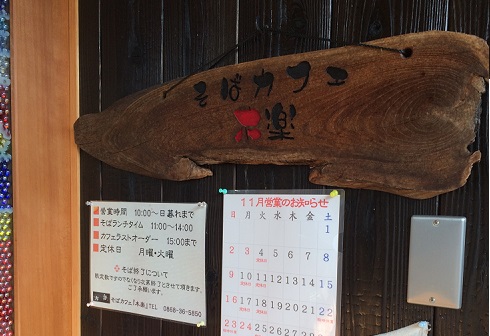 そばカフェ
木楽
営業時間 10:00～日暮れまで
そばランチタイム 11:00～14:00
カフェラストオーダー 15:00まで
定休日 月曜・火曜
◇ そば終了について
そばカフェ「木楽」TEL 0868-36-5850
11月営業のお知らせ
日 月 火 水 木 金 土
1
2 3 4 5 6 7 8
9 10 11 12 13 14 15
16 17 18 19 20 21 22
23 24 25 26 27 28 29